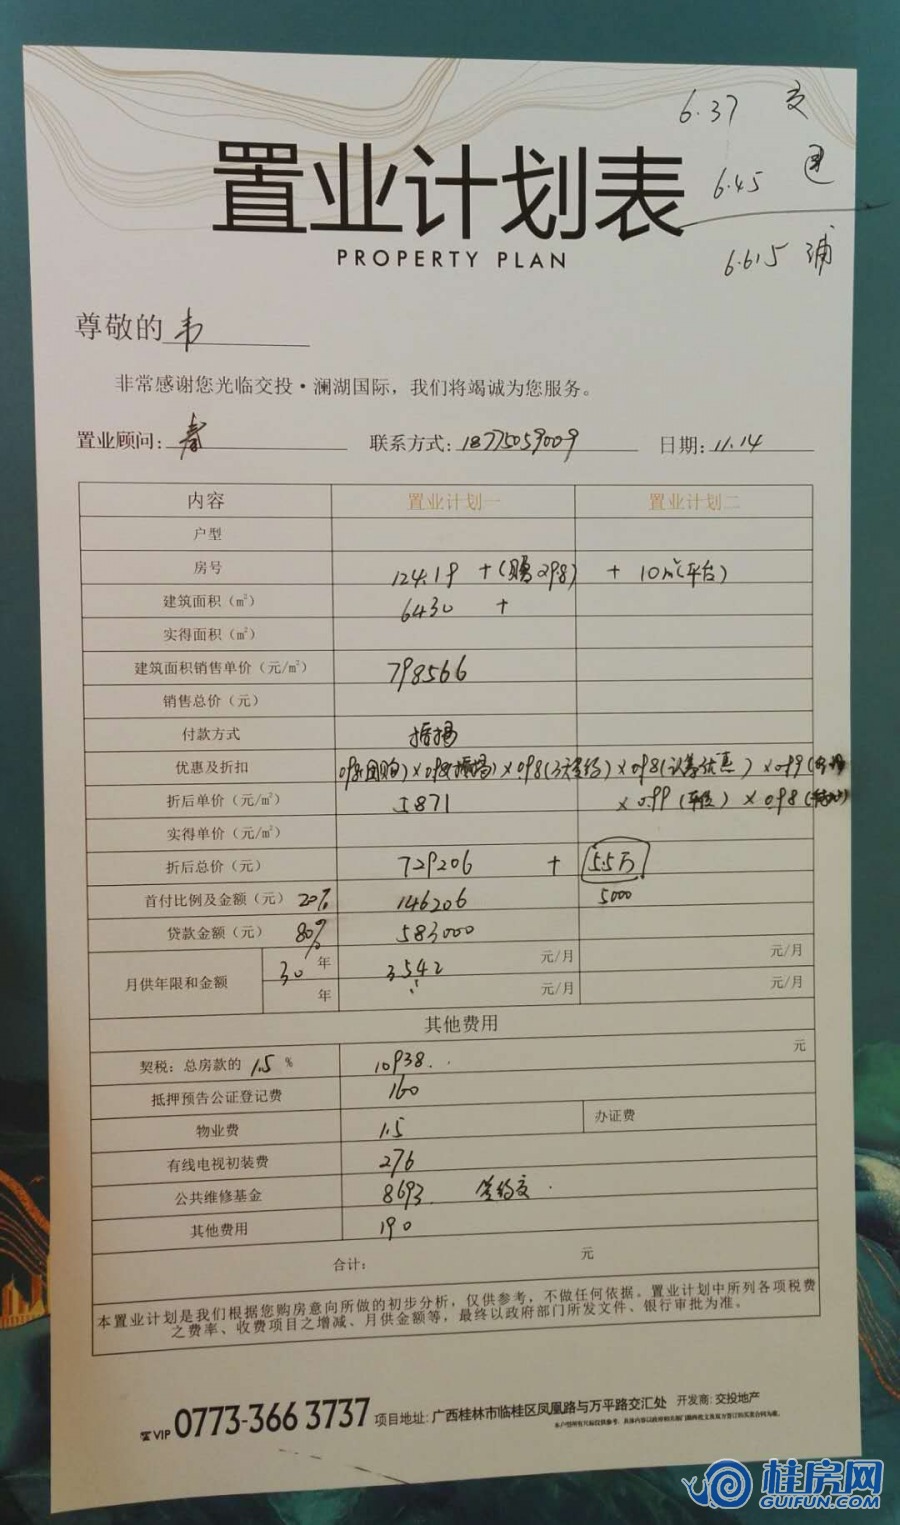 6.37 交
6.45 团
6.615 浦
置业计划表
PROPERTY PLAN
尊敬的 韦
非常感谢您光临交投·澜湖国际，我们将竭诚为您服务。
置业顾问： 联系方式：18775059009 日期：11.14
内容 置业计划一 置业计划二
户型
房号 124.19 +(赠29.8) + 10㎡(平台)
建筑面积（m²） 6430 +
实得面积（m²）
建筑面积销售单价（元/m²） 798566
销售总价（元）
付款方式 按揭
优惠及折扣 0.98(团购)×0.98(按揭)×0.98(3天签约)×0.98(认筹优惠)×0.99
折后单价（元/m²） 5871 ×0.99(车位)×0.98
实得单价（元/m²）
折后总价（元） 729206 + 5.5万
首付比例及金额（元） 20% 146206 5000
贷款金额（元） 80% 583000
月供年限和金额 30 年 3542 元/月 元/月
年 元/月 元/月
其他费用
契税：总房款的 1.5 % 10938. 元
抵押预告公证登记费 160
物业费 1.5 办证费
有线电视初装费 276
公共维修基金 8693 签约交
其他费用 190
合计： 元
本置业计划是我们根据您购房意向所做的初步分析，仅供参考，不做任何依据。置业计划中所列各项税费
之费率、收费项目之增减、月供金额等，最终以政府部门所发文件、银行审批为准。
VIP 0773-366 3737 项目地址：广西桂林市临桂区凤凰路与万平路交汇处 开发商：交投地产
桂房网
GUIFUN.COM